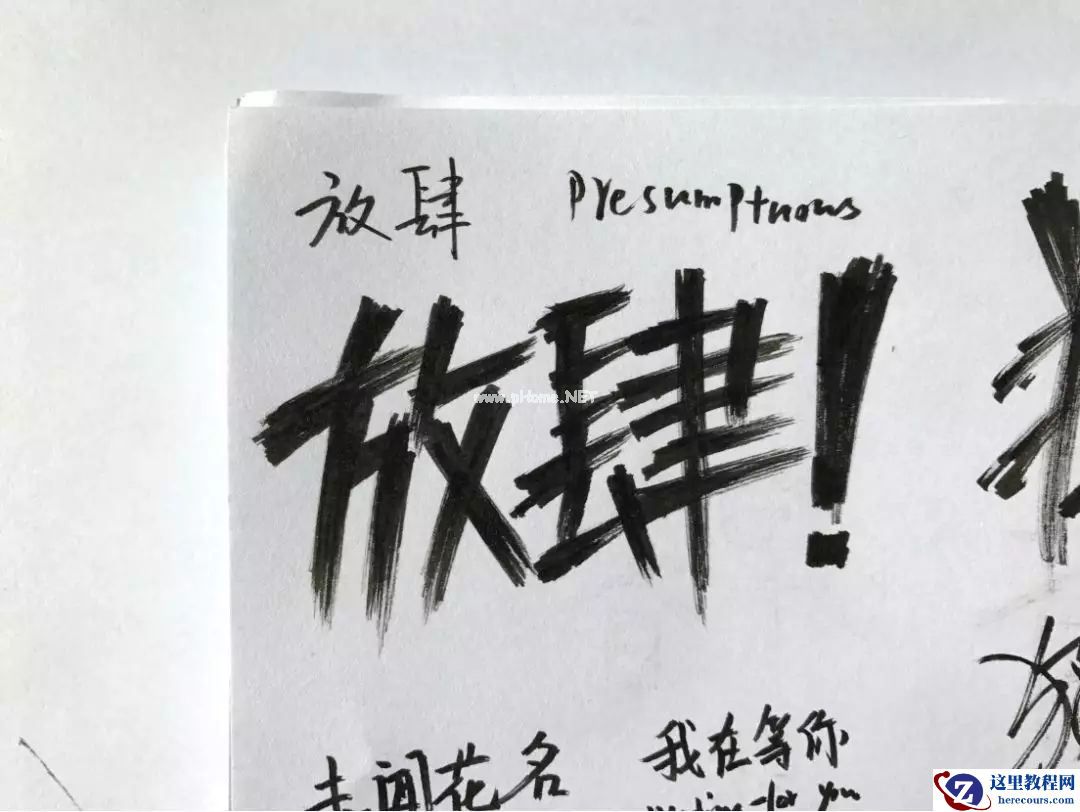 放肆 Presumptuous
放肆!
www.pHome.NET
未闻花名
我在等你
waiting for you
这里教程网
herecours.com